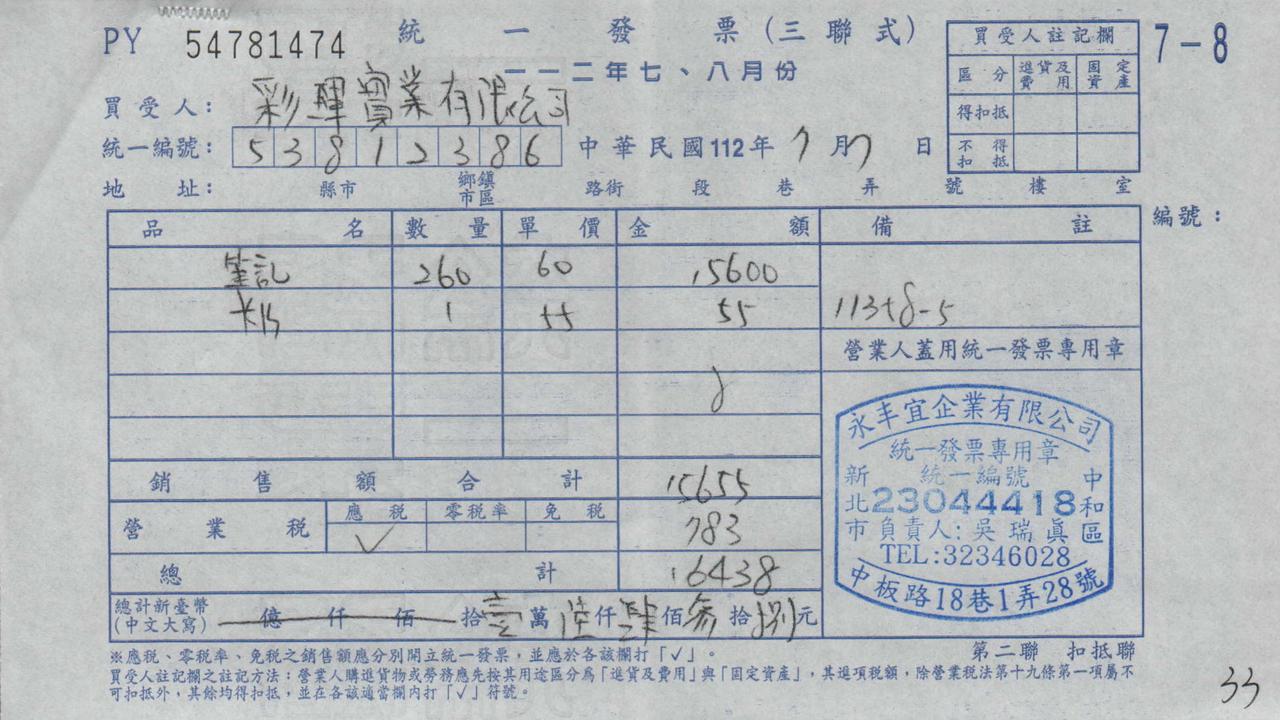 PY 54781474 統一發票(三聯式) 7-8
一一二年七、八月份
買受人註記欄
區分 進貨及費用 固定資產
得扣抵
不得扣抵
買受人: 彩暉實業有限公司
統一編號: 53812386 中華民國112年7月7日
地址: 縣市 鄉鎮市區 路街 段 巷 弄 號 樓 室
品名 數量 單價 金額 備註 編號:
筆記 260 60 15600
1 55 55 113+8-5
營業人蓋用統一發票專用章
銷售額合計 15655
營業稅 應稅 ✓ 零稅率 免稅 783
總計 16438
總計新臺幣(中文大寫) 億 仟 佰 拾壹萬陸仟肆佰參拾捌元
永丰宜企業有限公司
統一發票專用章
統一編號
23044418
新北市 中和區
負責人:吳瑞眞
TEL:32346028
中板路18巷1弄28號
※應稅、零稅率、免稅之銷售額應分別開立統一發票,並應於各該欄打「✓」。
第二聯 扣抵聯
買受人註記欄之註記方法:營業人購進貨物或勞務應先按其用途區分為「進貨及費用」與「固定資產」,其進項稅額,除營業稅法第十九條第一項屬不
可扣抵外,其餘均得扣抵,並在各該適當欄內打「✓」符號。
33